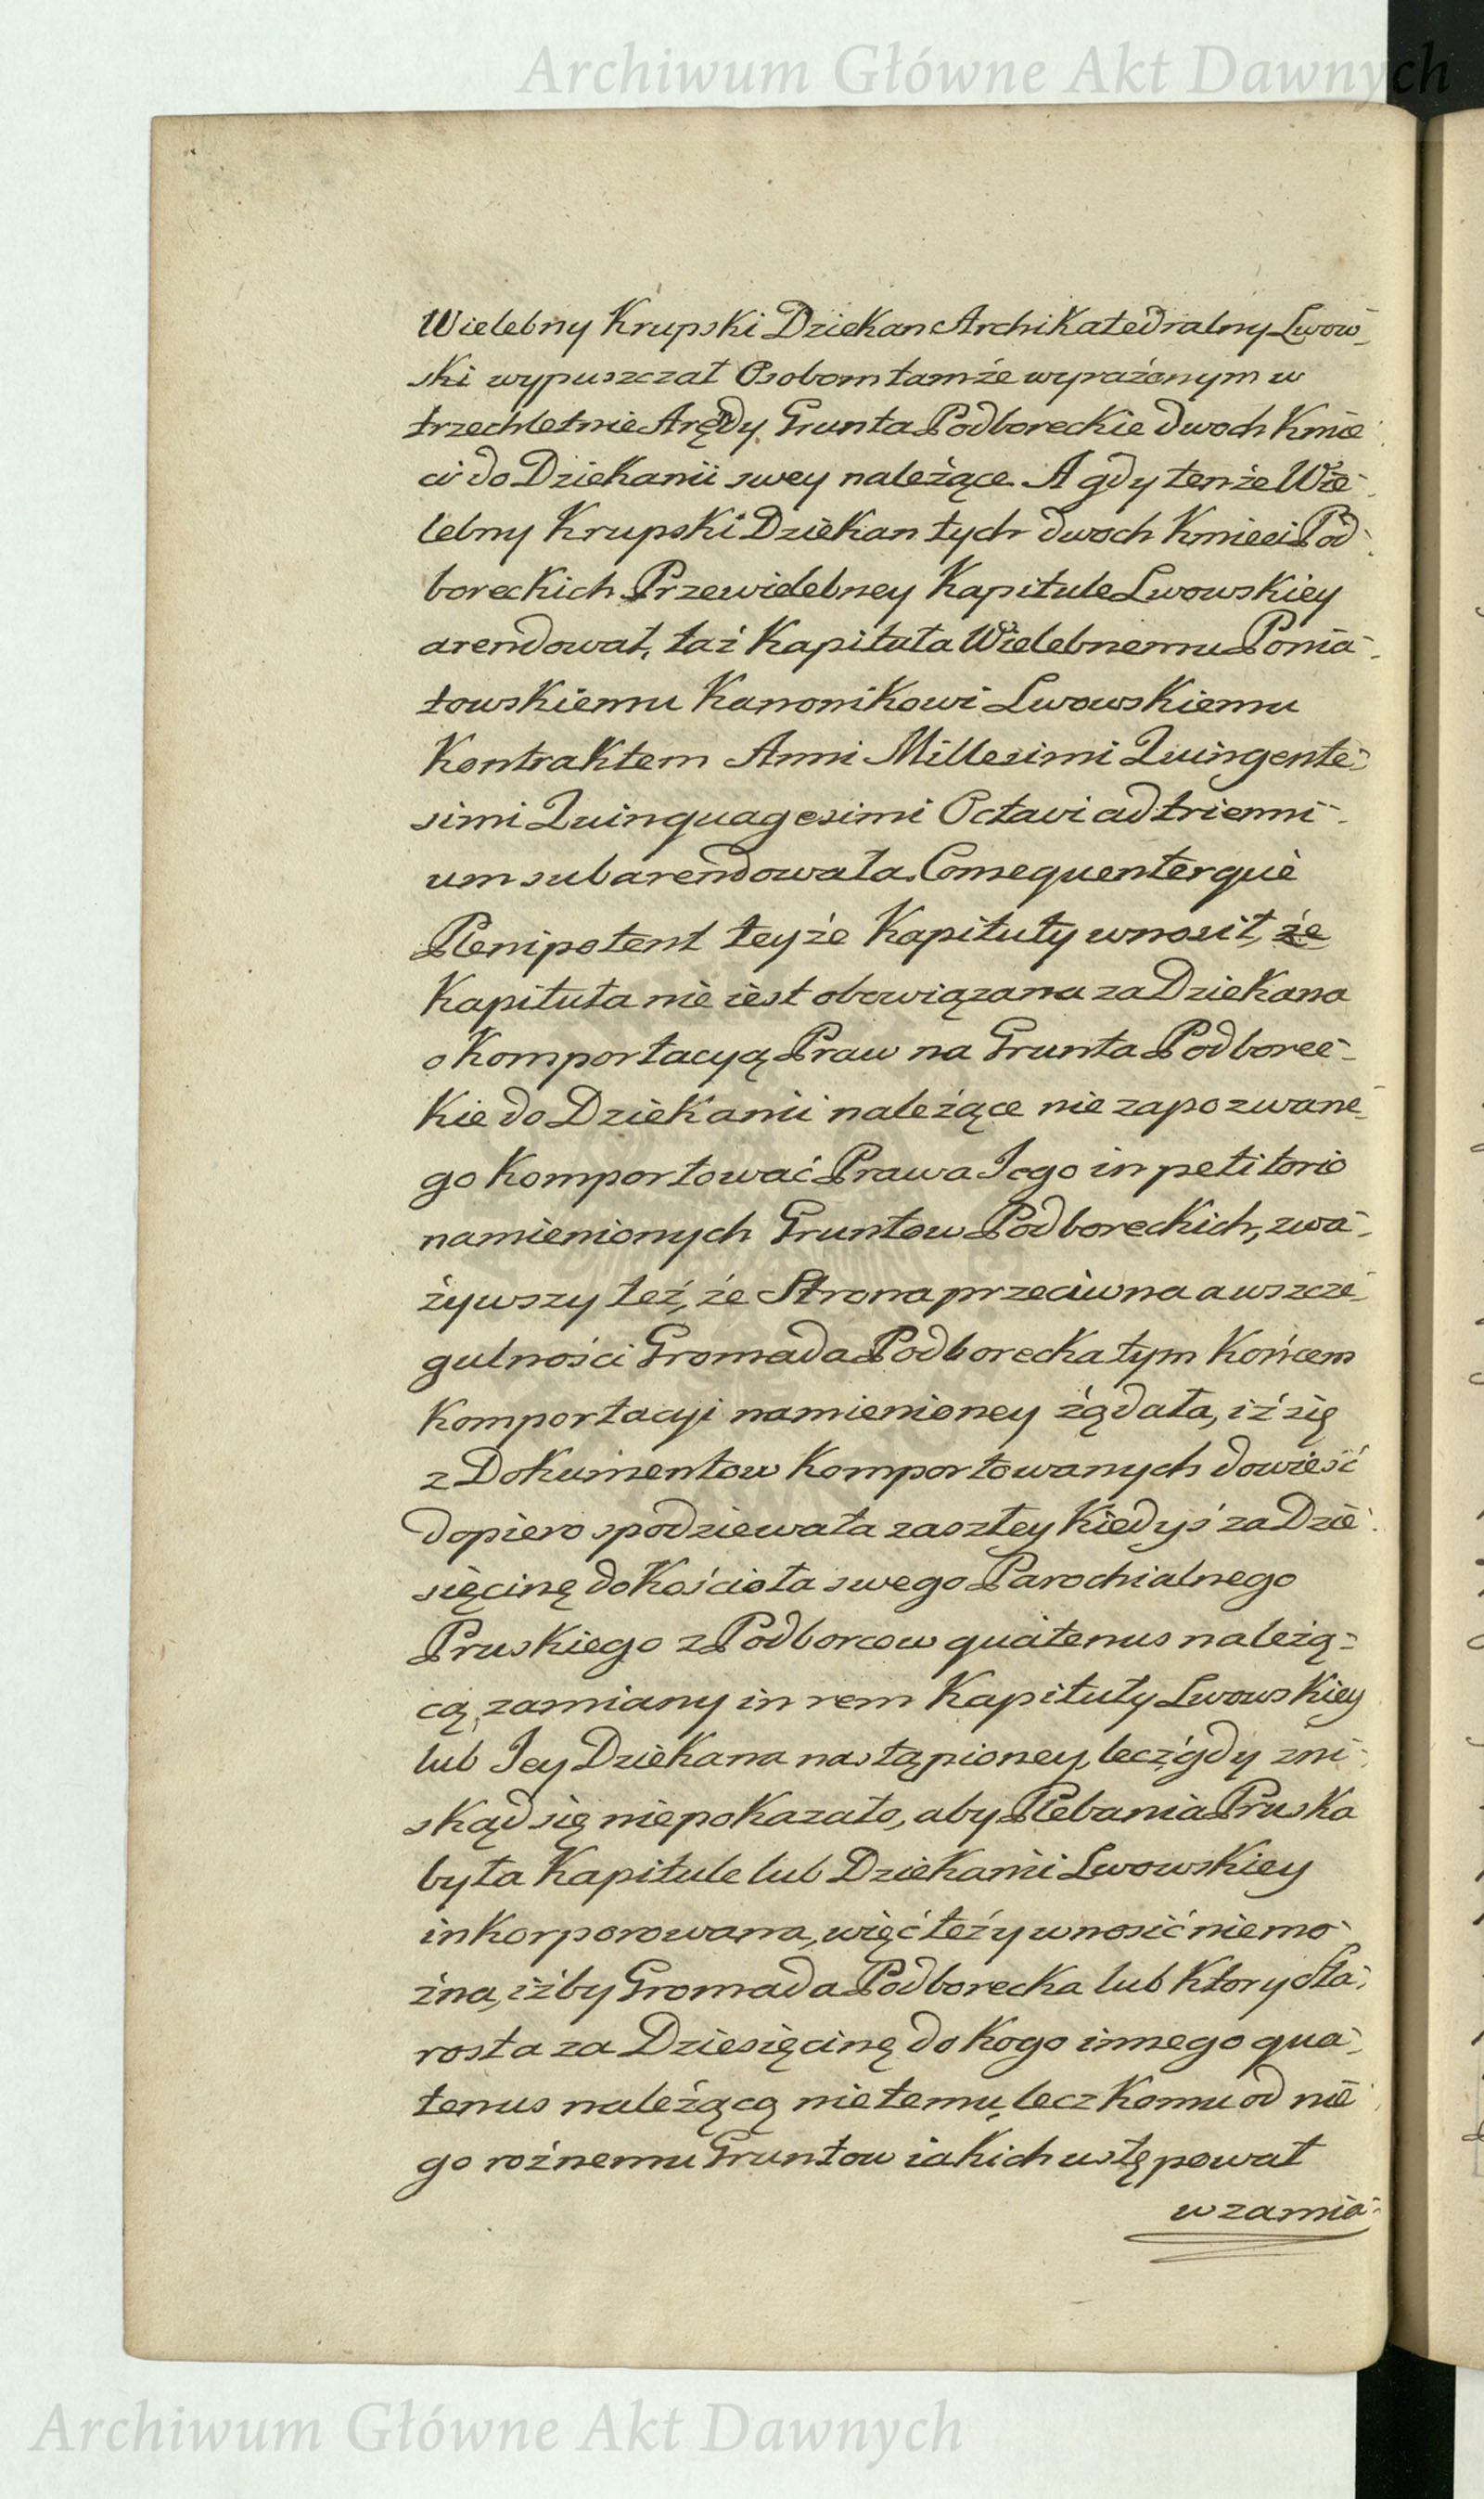 Archiwum Główne Akt Dawnych
Wielebny Krupski Dziekan Archikatedralny Lwow-
ski wypuszczał Osobom tamże wyrażonym w
trzechletnie Arędy Grunta Podboreckie dwoch Kmie-
ci do Dziekanii swey należące. A gdy tenże Wie-
lebny Krupski Dziekan tych dwoch Kmieci Pod-
boreckich Przewielebney Kapitule Lwowskiey
arendował, taż Kapituła Wielebnemu Ponia-
towskiemu Kanonikowi Lwowskiemu
Kontraktem Anni Millesimi Quingente-
simi Quinquagesimi Octavi ad trienni-
um subarendowała. Consequenterque
Plenipotent teyże Kapituły wnosił, że
Kapituła nie iest obowiązana za Dziekana
o Komportacyą Praw na Grunta Podborec-
kie do Dziekanii należące nie zapozwane-
go Komportować Prawa Jego in petitorio
namienionych Gruntow Podboreckich, zwa-
żywszy też, że Strona przeciwna a wszcze-
gulności Gromada Podborecka tym Końcem
Komportacyi namienioney żądała, iż się
z Dokumentow Komportowanych dowieść
dopiero spodziewała zaszłey Kiedyś za Dzie-
sięcinę do Kościoła swego Parochialnego
Pruskiego z Podborcow quatenus należą-
cą, zamiany in rem Kapituły Lwowskiey
lub Jey Dziekana nastąpioney, lecz gdy zni-
skąd się nie pokazało, aby Plebania Pruska
była Kapitule lub Dziekanii Lwowskiey
inkorporowana, więc też y wnosić nie mo-
żna, iżby Gromada Podborecka lub Ktory Sta-
rosta za Dziesięcinę do Kogo innego qua-
tenus należącą nie temu, lecz Komu od nie-
go rożnemu Gruntow iakich ustępował
w zamia-
Archiwum Główne Akt Dawnych